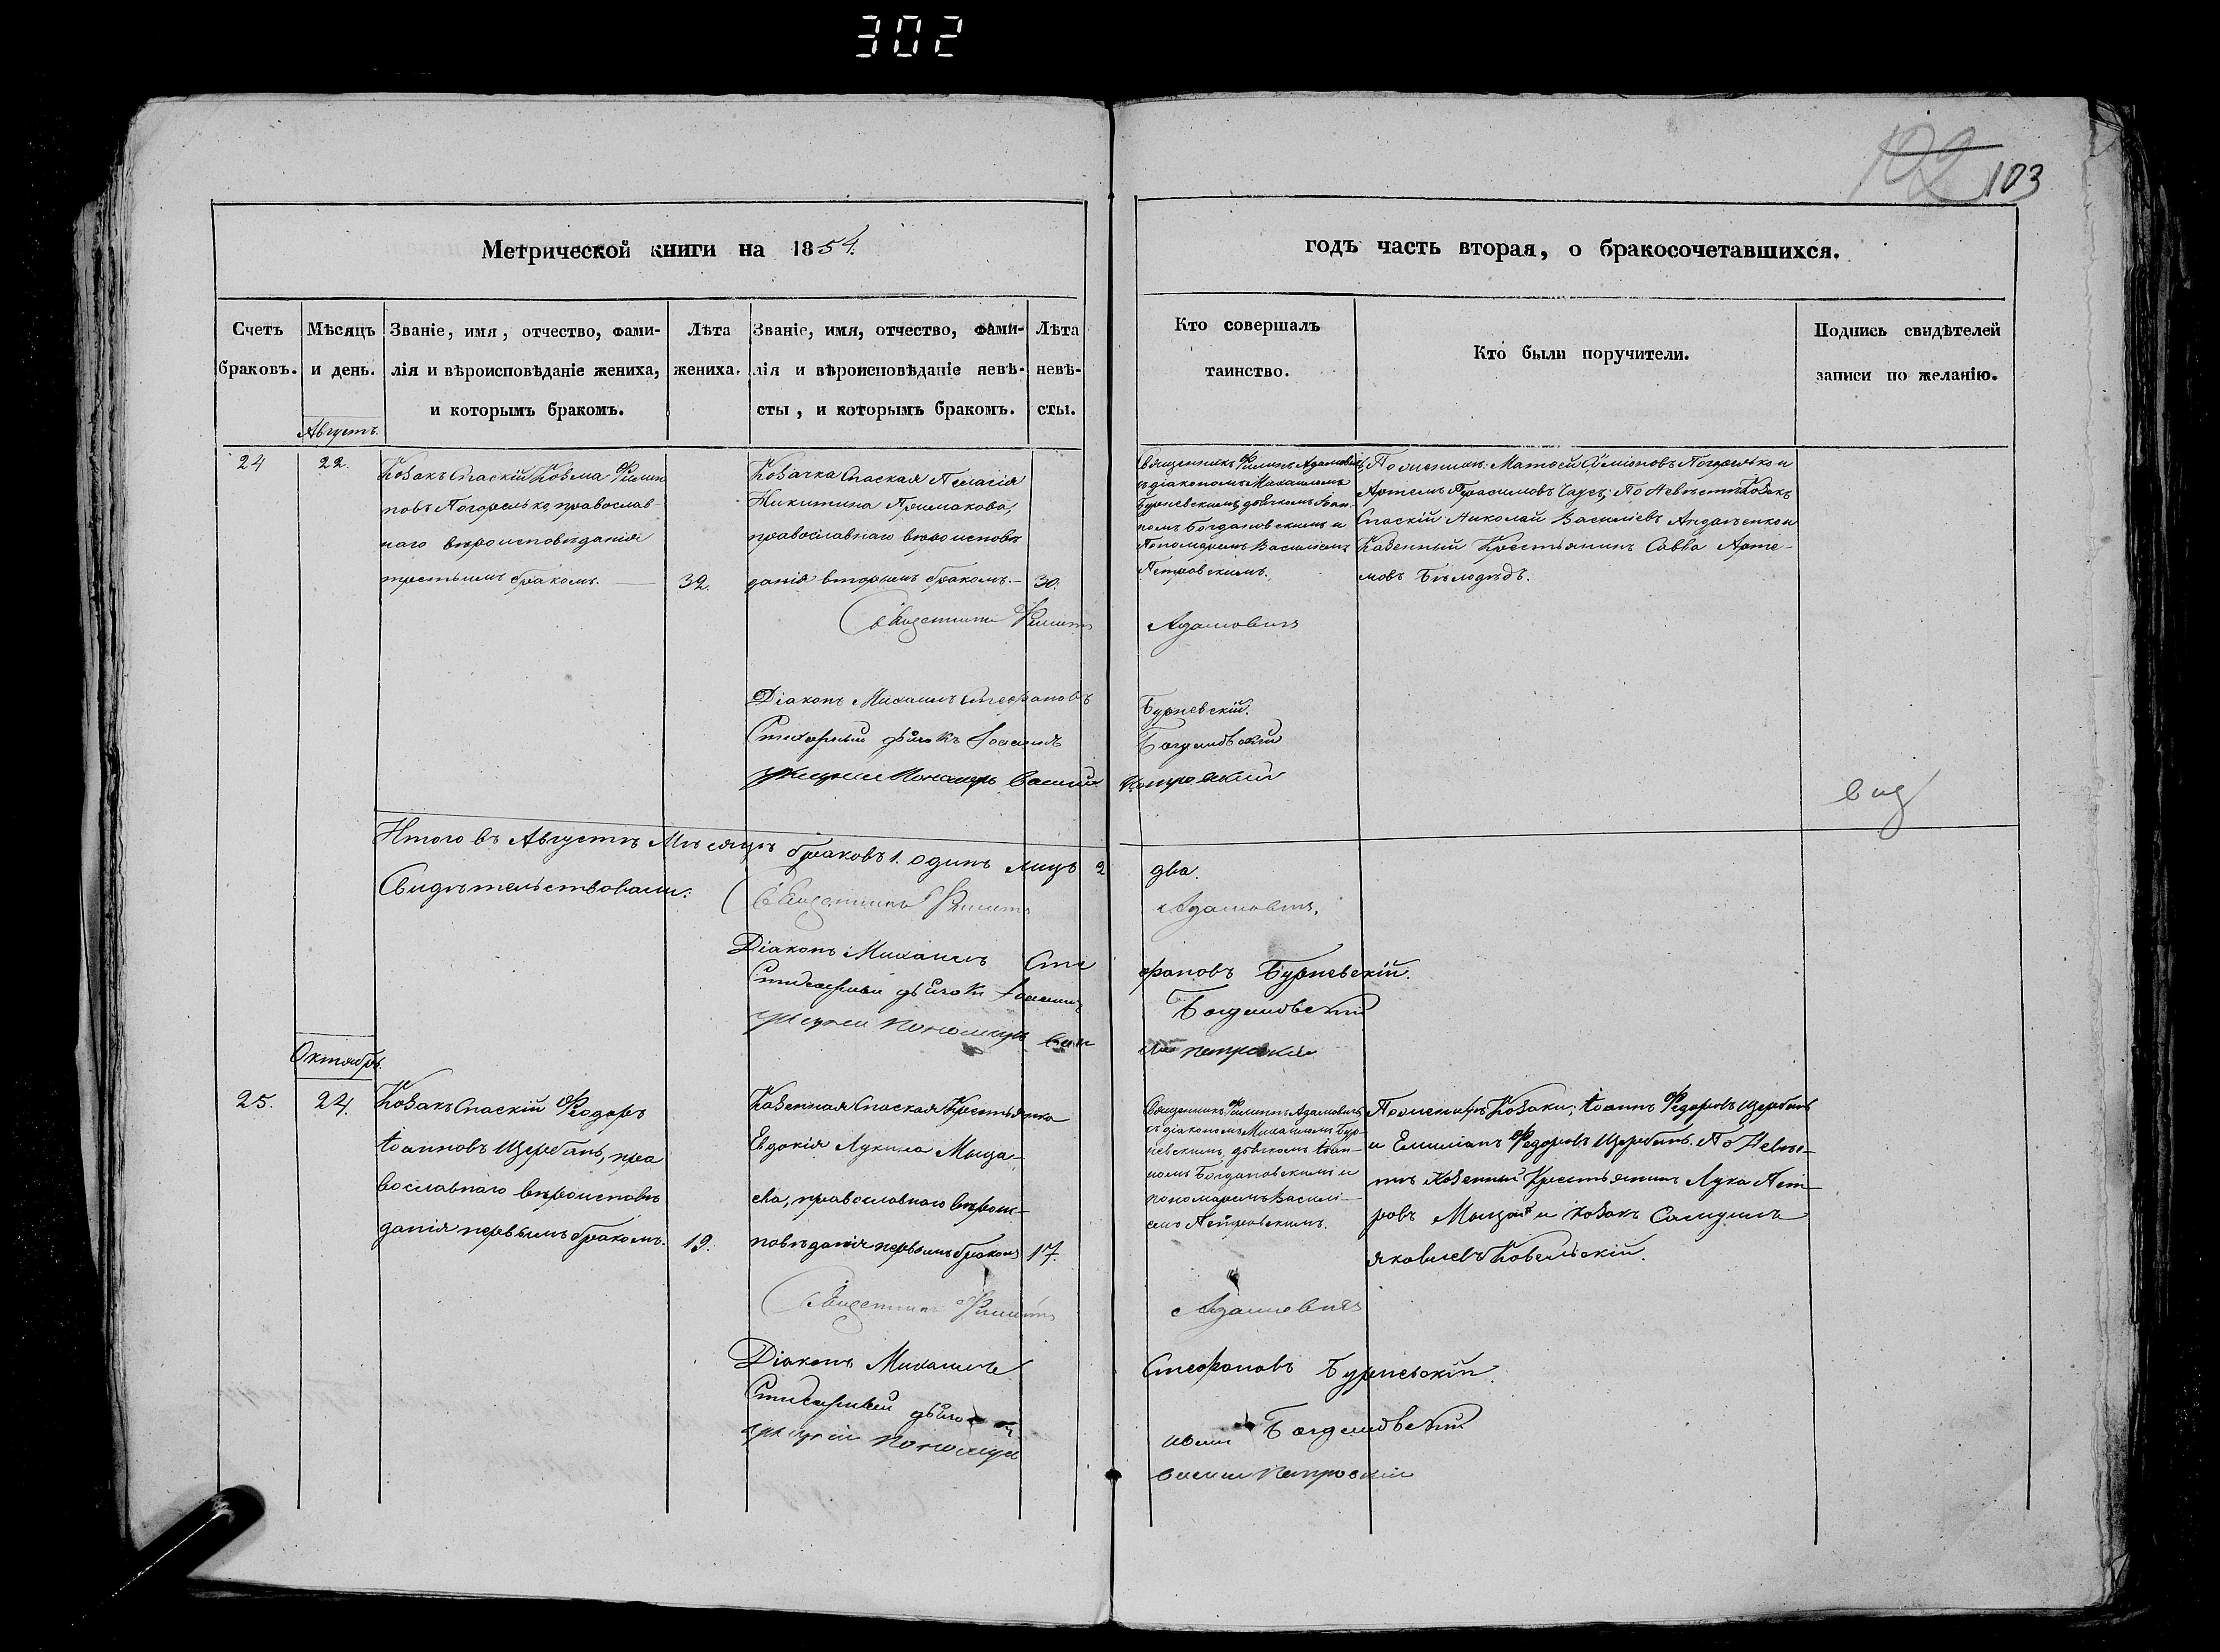 302
102 103
Метрической книги на 1854.
годъ часть вторая, о бракосочетавшихся.
Счетъ
браковъ.
Мѣсяцъ
и день.
Званіе, имя, отчество, фами-
лія и вѣроисповѣданіе жениха,
и которымъ бракомъ.
Лѣта
жениха.
Званіе, имя, отчество, фами-
лія и вѣроисповѣданіе невѣ-
сты, и которымъ бракомъ.
Лѣта
невѣ-
сты.
Кто совершалъ
таинство.
Кто были поручители.
Подпись свидѣтелей
записи по желанію.
Августъ.
24
22.
Козакъ Спаскій Козма Филип
повъ Погорелько православ-
наго вѣроисповѣданія
третьимъ бракомъ.
32.
Козачка Спаская Пелагія
Никитина Примакова,
православнаго вѣроисповѣ
данія вторымъ бракомъ.
30.
Священникъ Филипъ Адамовичъ
съ діакономъ Михаиломъ
Бурневскимъ дьячкомъ Іоан-
номъ Богдановскимъ и
Пономаремъ Василіемъ
Петровскимъ.
По женихѣ: Матѳей Симіоновъ Погорелько и
Артемъ Герасимовъ; По Невѣстѣ Козакъ
Спаскій Николай Василіевъ и
Казенный Крестьянинъ Савва Арте-
мовъ Бѣлодѣдъ.
Священникъ Филипъ
Адамовичъ
Діаконъ Михаилъ Стефановъ
Бурневскій.
Стихарный дьячокъ Іоаннъ
Богдановскій
Пономарь Василій
Петровскій
вид
Итого въ Августѣ Мѣсяцѣ браковъ 1. одинъ лицъ 2
два.
Свидѣтельствовали:
Священникъ Филипъ
Адамовичъ,
Діаконъ Михаилъ Сте
фановъ Бурневскій.
Стихарный дьячокъ Іоаннъ
Богдановскій
Пономарь Васи
лій Петровскій
Октябрь.
25.
24.
Козакъ Спаскій Феодоръ
Іоанновъ Щербань, пра
вославнаго вѣроисповѣ
данія первымъ бракомъ.
19.
Казенная Спаская Крестьянка
Евдокія Лукина Мыца-
ева, православнаго вѣроис-
повѣданія первымъ бракомъ
17.
Священникъ Филиппъ Адамовичъ
съ діакономъ Михаиломъ Бур-
невскимъ, дьячкомъ Іоан-
номъ Богдановскимъ и
пономаремъ Василі-
емъ Петровскимъ.
По женихѣ Козаки; Іоаннъ Федоровъ Щербань
и Емиліанъ Федоровъ Щербань. По Невѣс-
тѣ Казенный Крестьянинъ Лука Пет-
ровъ и Козакъ Самуилъ
Яковлевъ Ковельскій.
Священникъ Филипъ
Адамовичъ
Діаконъ Михаилъ
Стефановъ Бурневскій.
Стихарный дьячокъ
Іоаннъ Богдановскій
Пономарь
Василій Петровскій